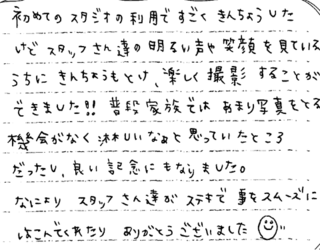 初めてのスタジオの利用ですごくきんちょうした
けどスタッフさん達の明るい声や笑顔を見ている
うちにきんちょうもとけ、楽しく撮影することが
できました!! 普段家族ではあまり写真をとる
機会がなく淋しいなぁと思っていたところ
だったし、良い記念にもなりました。
なにより スタッフさん達がステキで 事をスムーズに
はこんでくれたり ありがとうございました